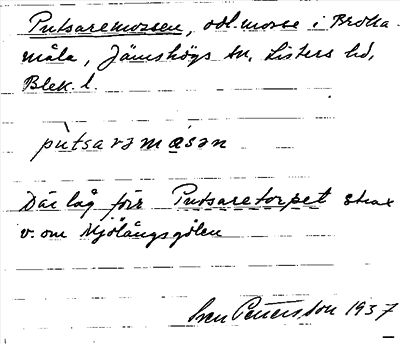 Putsaremossen, odl. mosse i Brokamåla, Jämshögs sn, Listers hd,
Blek. l.
pùtsarəmåsən
Där låg förr Putsaretorpet strax
v. om Mjölångsgölen
Sven Petersson 1937